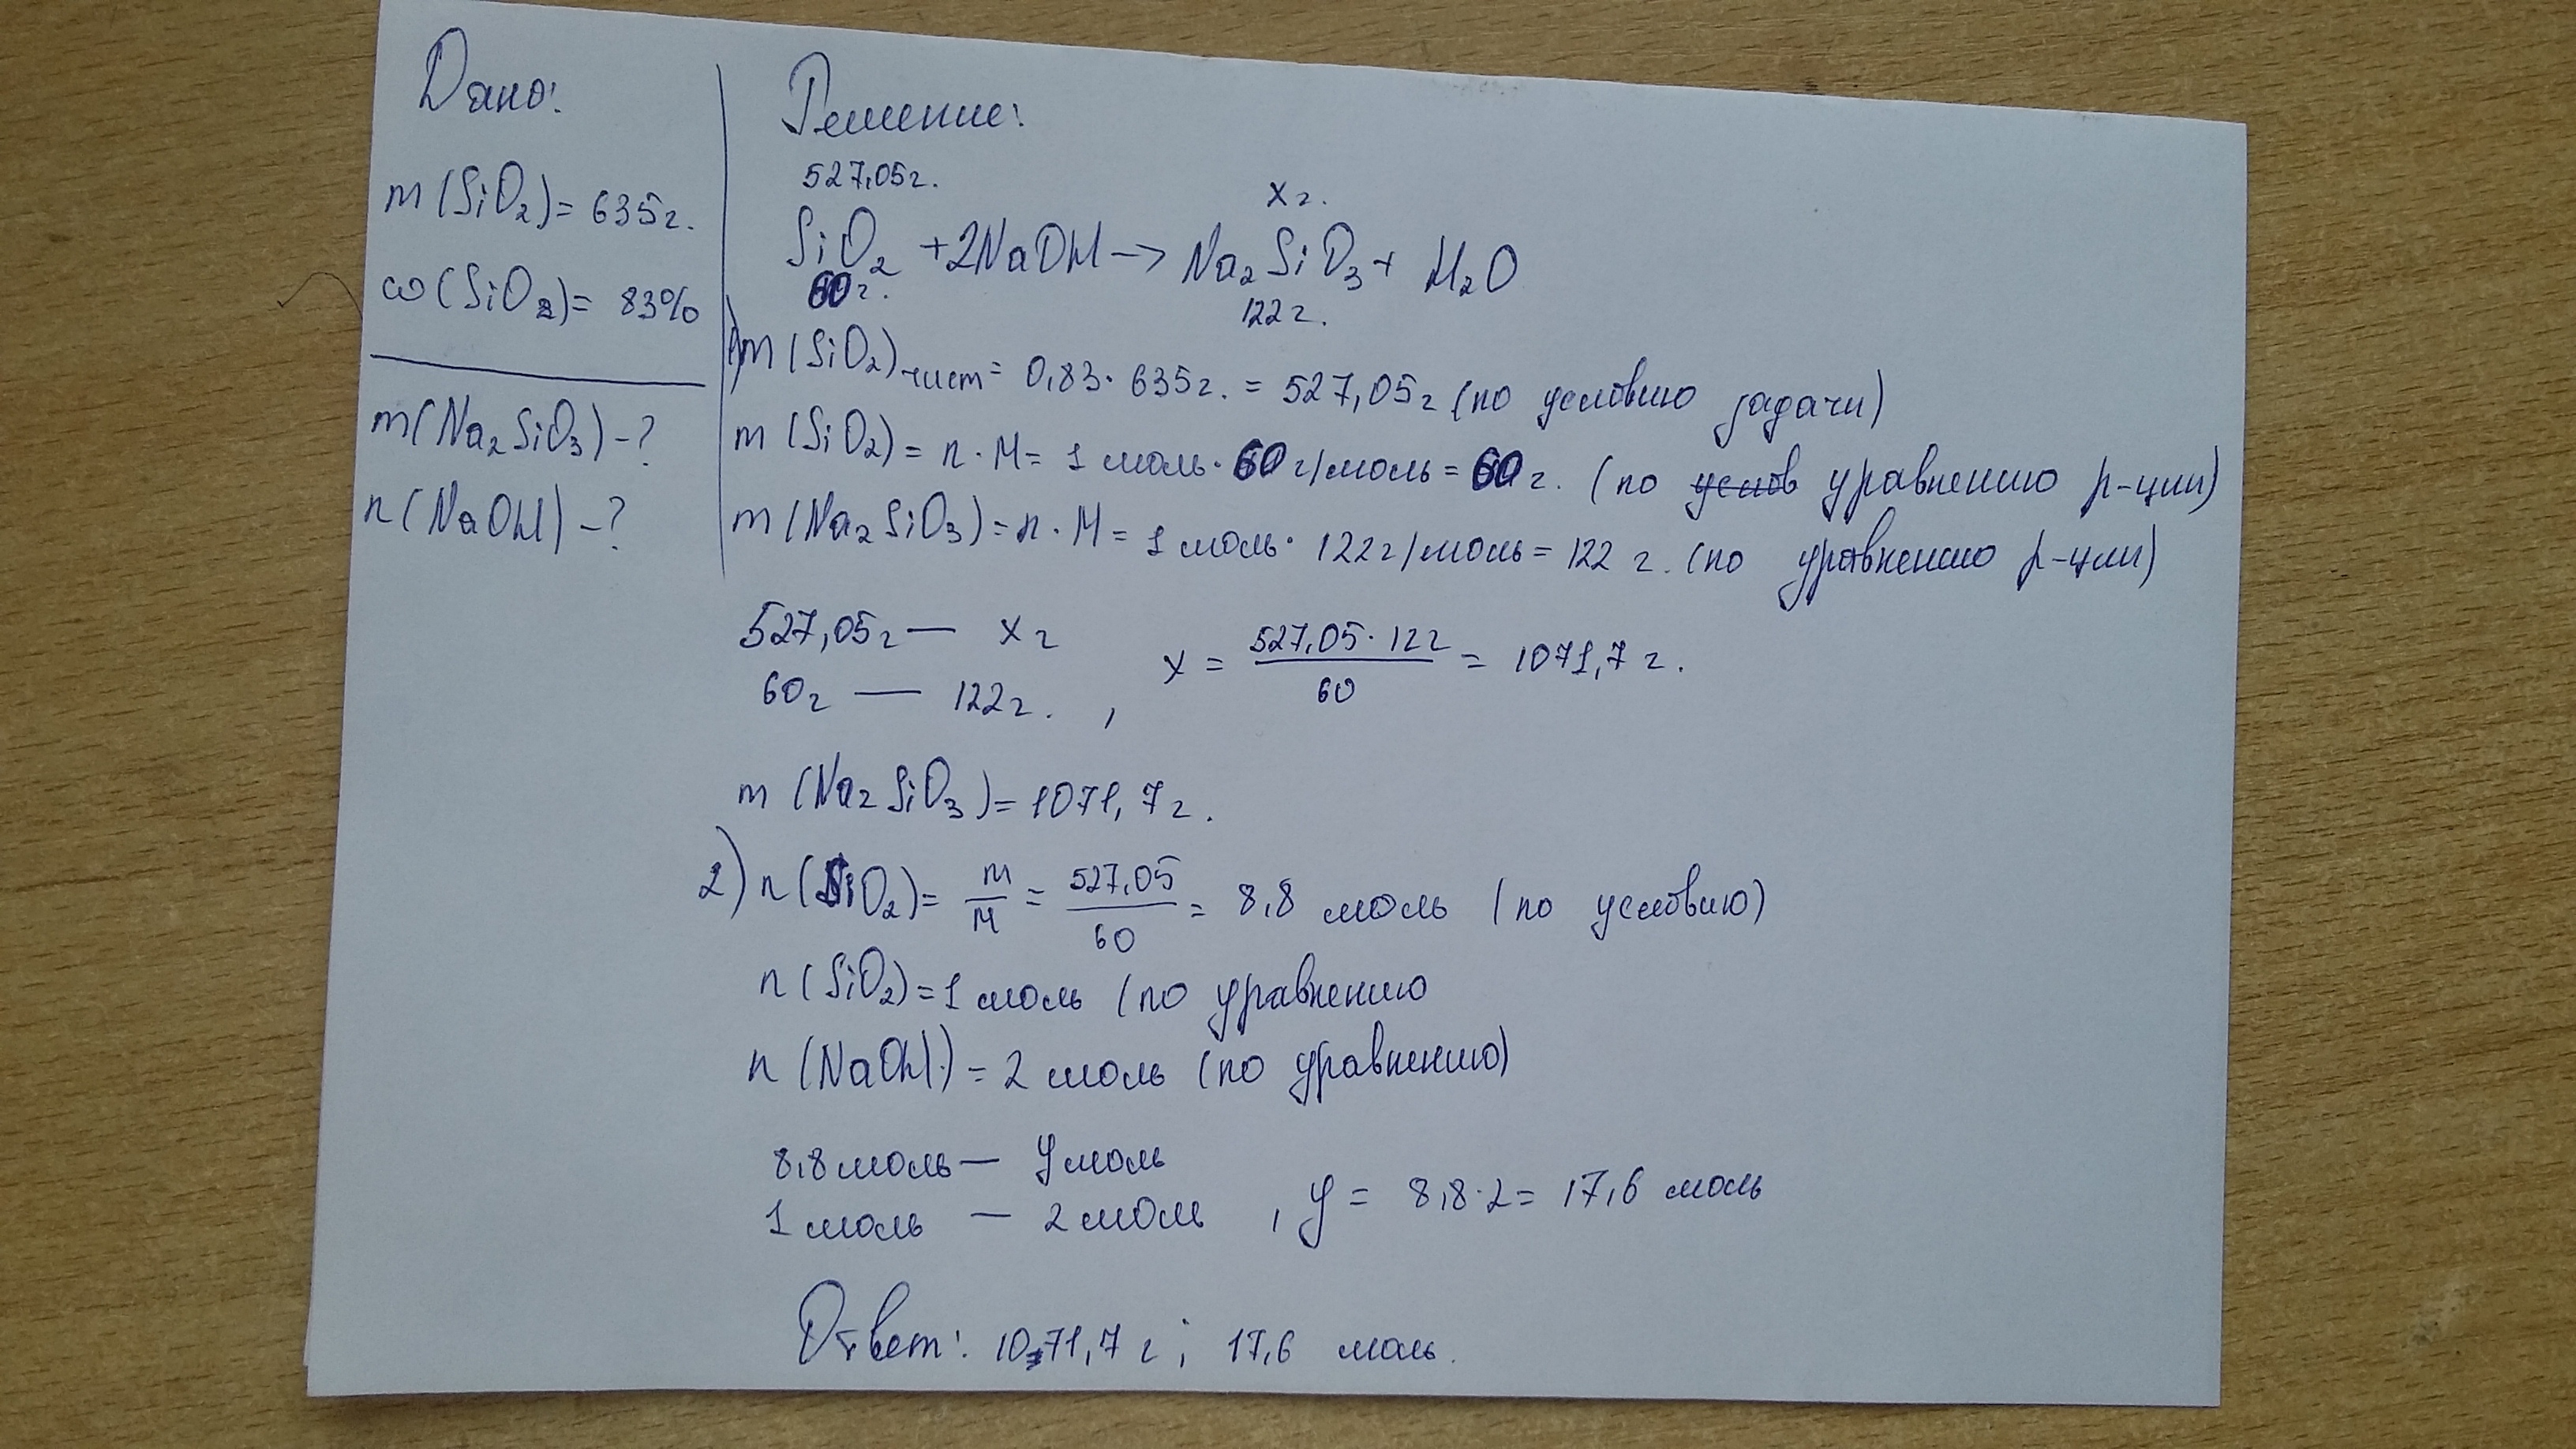 Дано:
m(SiO₂)= 635г.
ω(SiO₂)= 83%
m(Na₂SiO₃)-?
n(NaOH)-?
Решение:
527,05г. xг.
SiO₂ +2NaOH→ Na₂SiO₃+ H₂O
60г. 122г.
1)m(SiO₂)чист= 0,83·635г.=527,05г (по условию задачи)
m(SiO₂)= n·M= 1 моль·60г/моль=60г. (по услов уравнению р-ции)
m(Na₂SiO₃)=n·M= 1 моль·122г/моль=122 г. (по уравнению р-ции)
527,05г — xг
60г — 122г. , x = 527,05·122/60 = 1071,7 г.
m (Na₂SiO₃)=1071,7г.
2) n(SiO₂)= m/M = 527,05/60 = 8,8 моль (по условию)
n(SiO₂)=1 моль (по уравнению
n(NaOH)=2 моль (по уравнению)
8,8моль — y моль
1моль — 2моль , y = 8,8·2= 17,6 моль
Ответ: 1071,7 г; 17,6 моль.